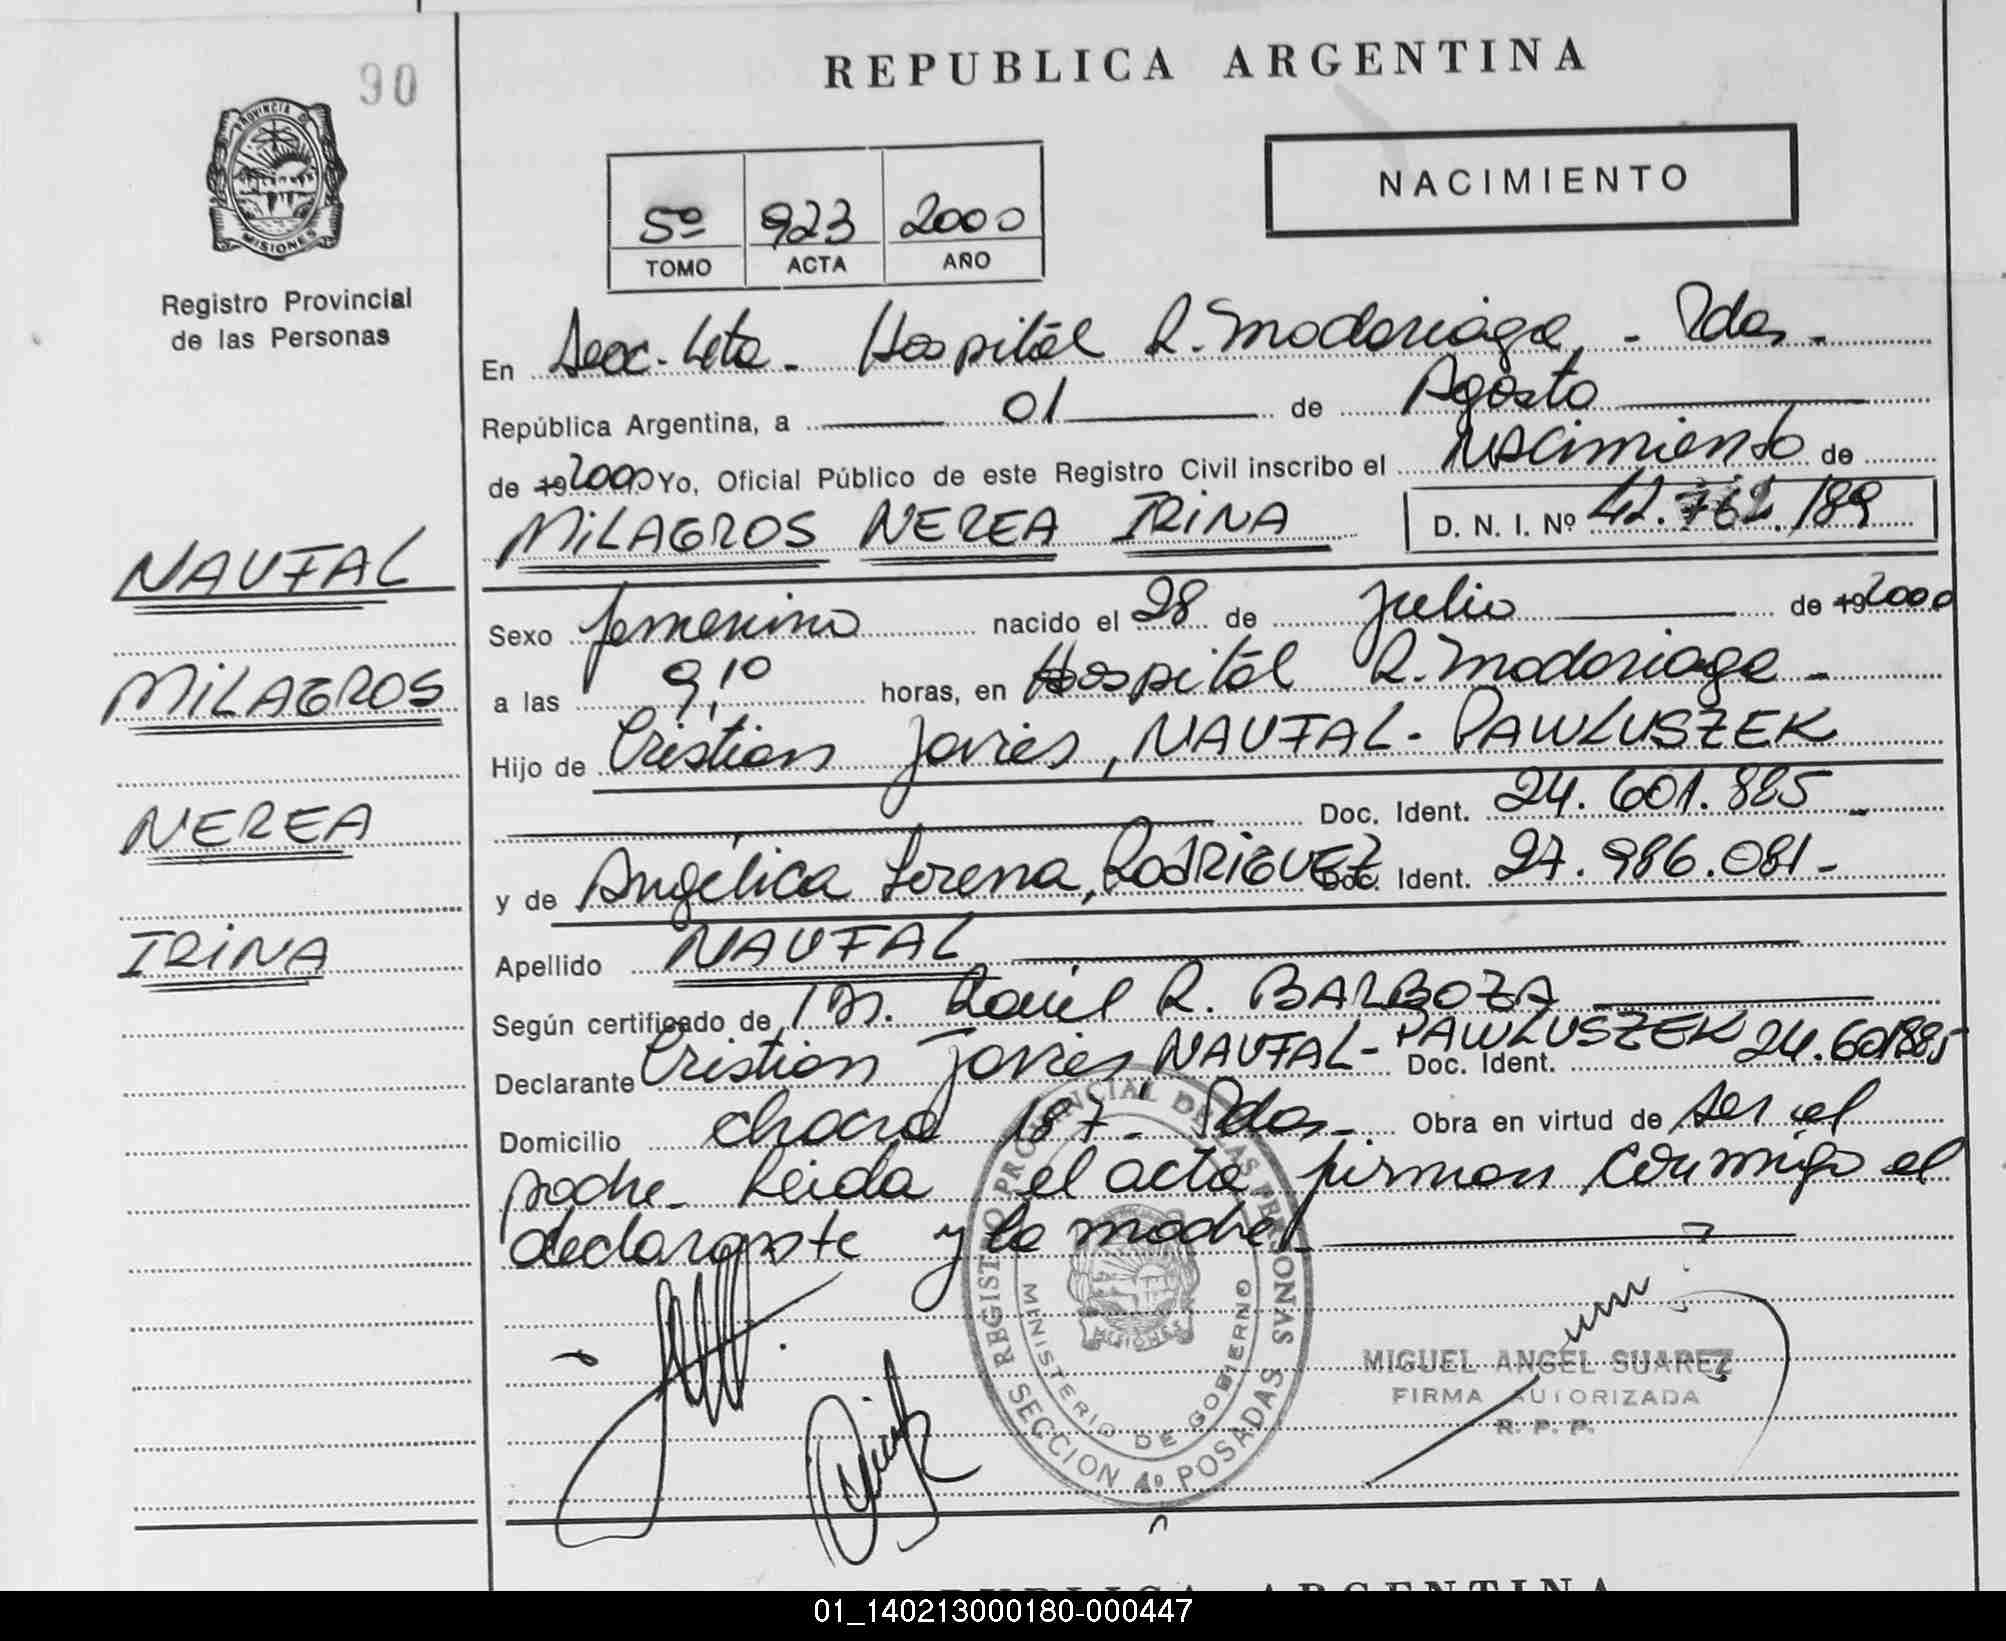 90
REPUBLICA ARGENTINA
PROVINCIA DE
MISIONES
Registro Provincial
de las Personas
NACIMIENTO
5º 923 2000
TOMO ACTA AÑO
En Secc. 4ta - Hospital R. Madariaga, - Pdas -
República Argentina, a 01 de Agosto
de 19 2000 Yo, Oficial Público de este Registro Civil inscribo el Nacimiento de
MILAGROS NEREA IRINA D. N. I. Nº 42.762.189
NAUFAL
MILAGROS
NEREA
IRINA
Sexo femenino nacido el 28 de Julio de 19 2000
a las 9,10 horas, en Hospital R. Madariaga -
Hijo de Cristian Javier, NAUFAL - PAWLUSZEK
Doc. Ident. 24.601.885 -
y de Angélica Lorena, RODRIGUEZ Doc. Ident. 27.986.081 -
Apellido NAUFAL
Según certificado de Dr. R. BARBOZA
Declarante Cristian Javier, NAUFAL - PAWLUSZEK Doc. Ident. 24.601.885
Domicilio chacra 187 - Pdas - Obra en virtud de ser el
padre - Leida el acta firman conmigo el
declarante y la madre
REGISTRO PROVINCIAL DE LAS PERSONAS
MINISTERIO DE GOBIERNO
MISIONES
SECCION 4º POSADAS
MIGUEL ANGEL SUAREZ
FIRMA AUTORIZADA
R. P. P.
REPUBLICA ARGENTINA
01_140213000180-000447